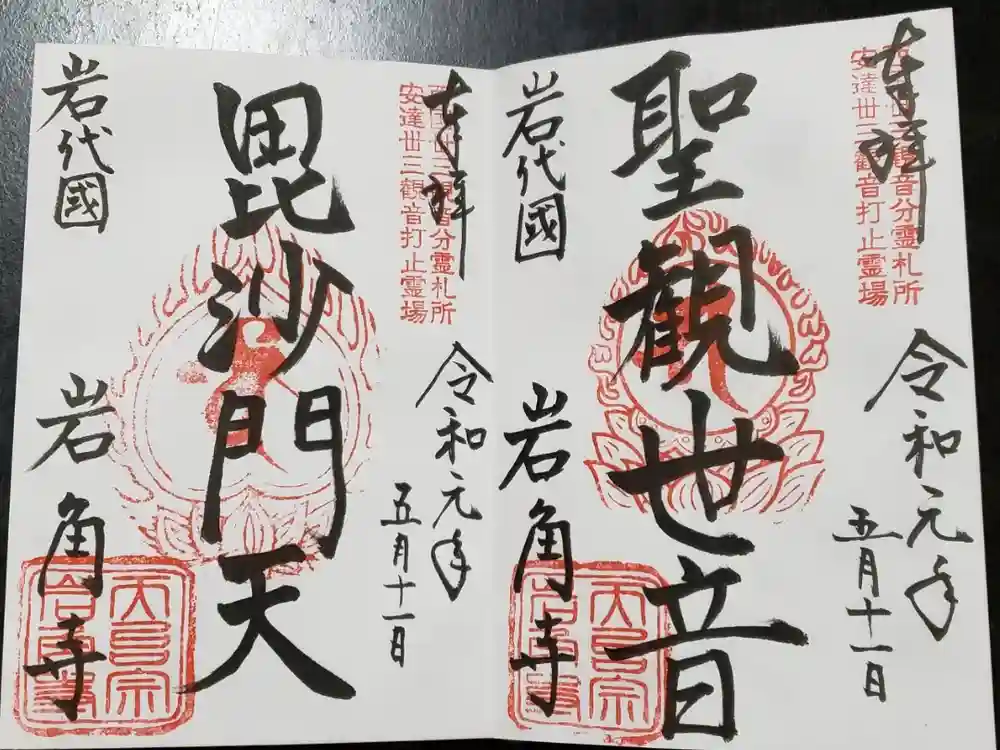 奉拝
西国卅三観音分霊札所
安達卅三観音打止霊場
令和元年
五月十一日
聖観世音
岩代國
岩角寺
奉拝
西国卅三観音分霊札所
安達卅三観音打止霊場
令和元年
五月十一日
毘沙門天
岩代國
岩角寺
天台宗